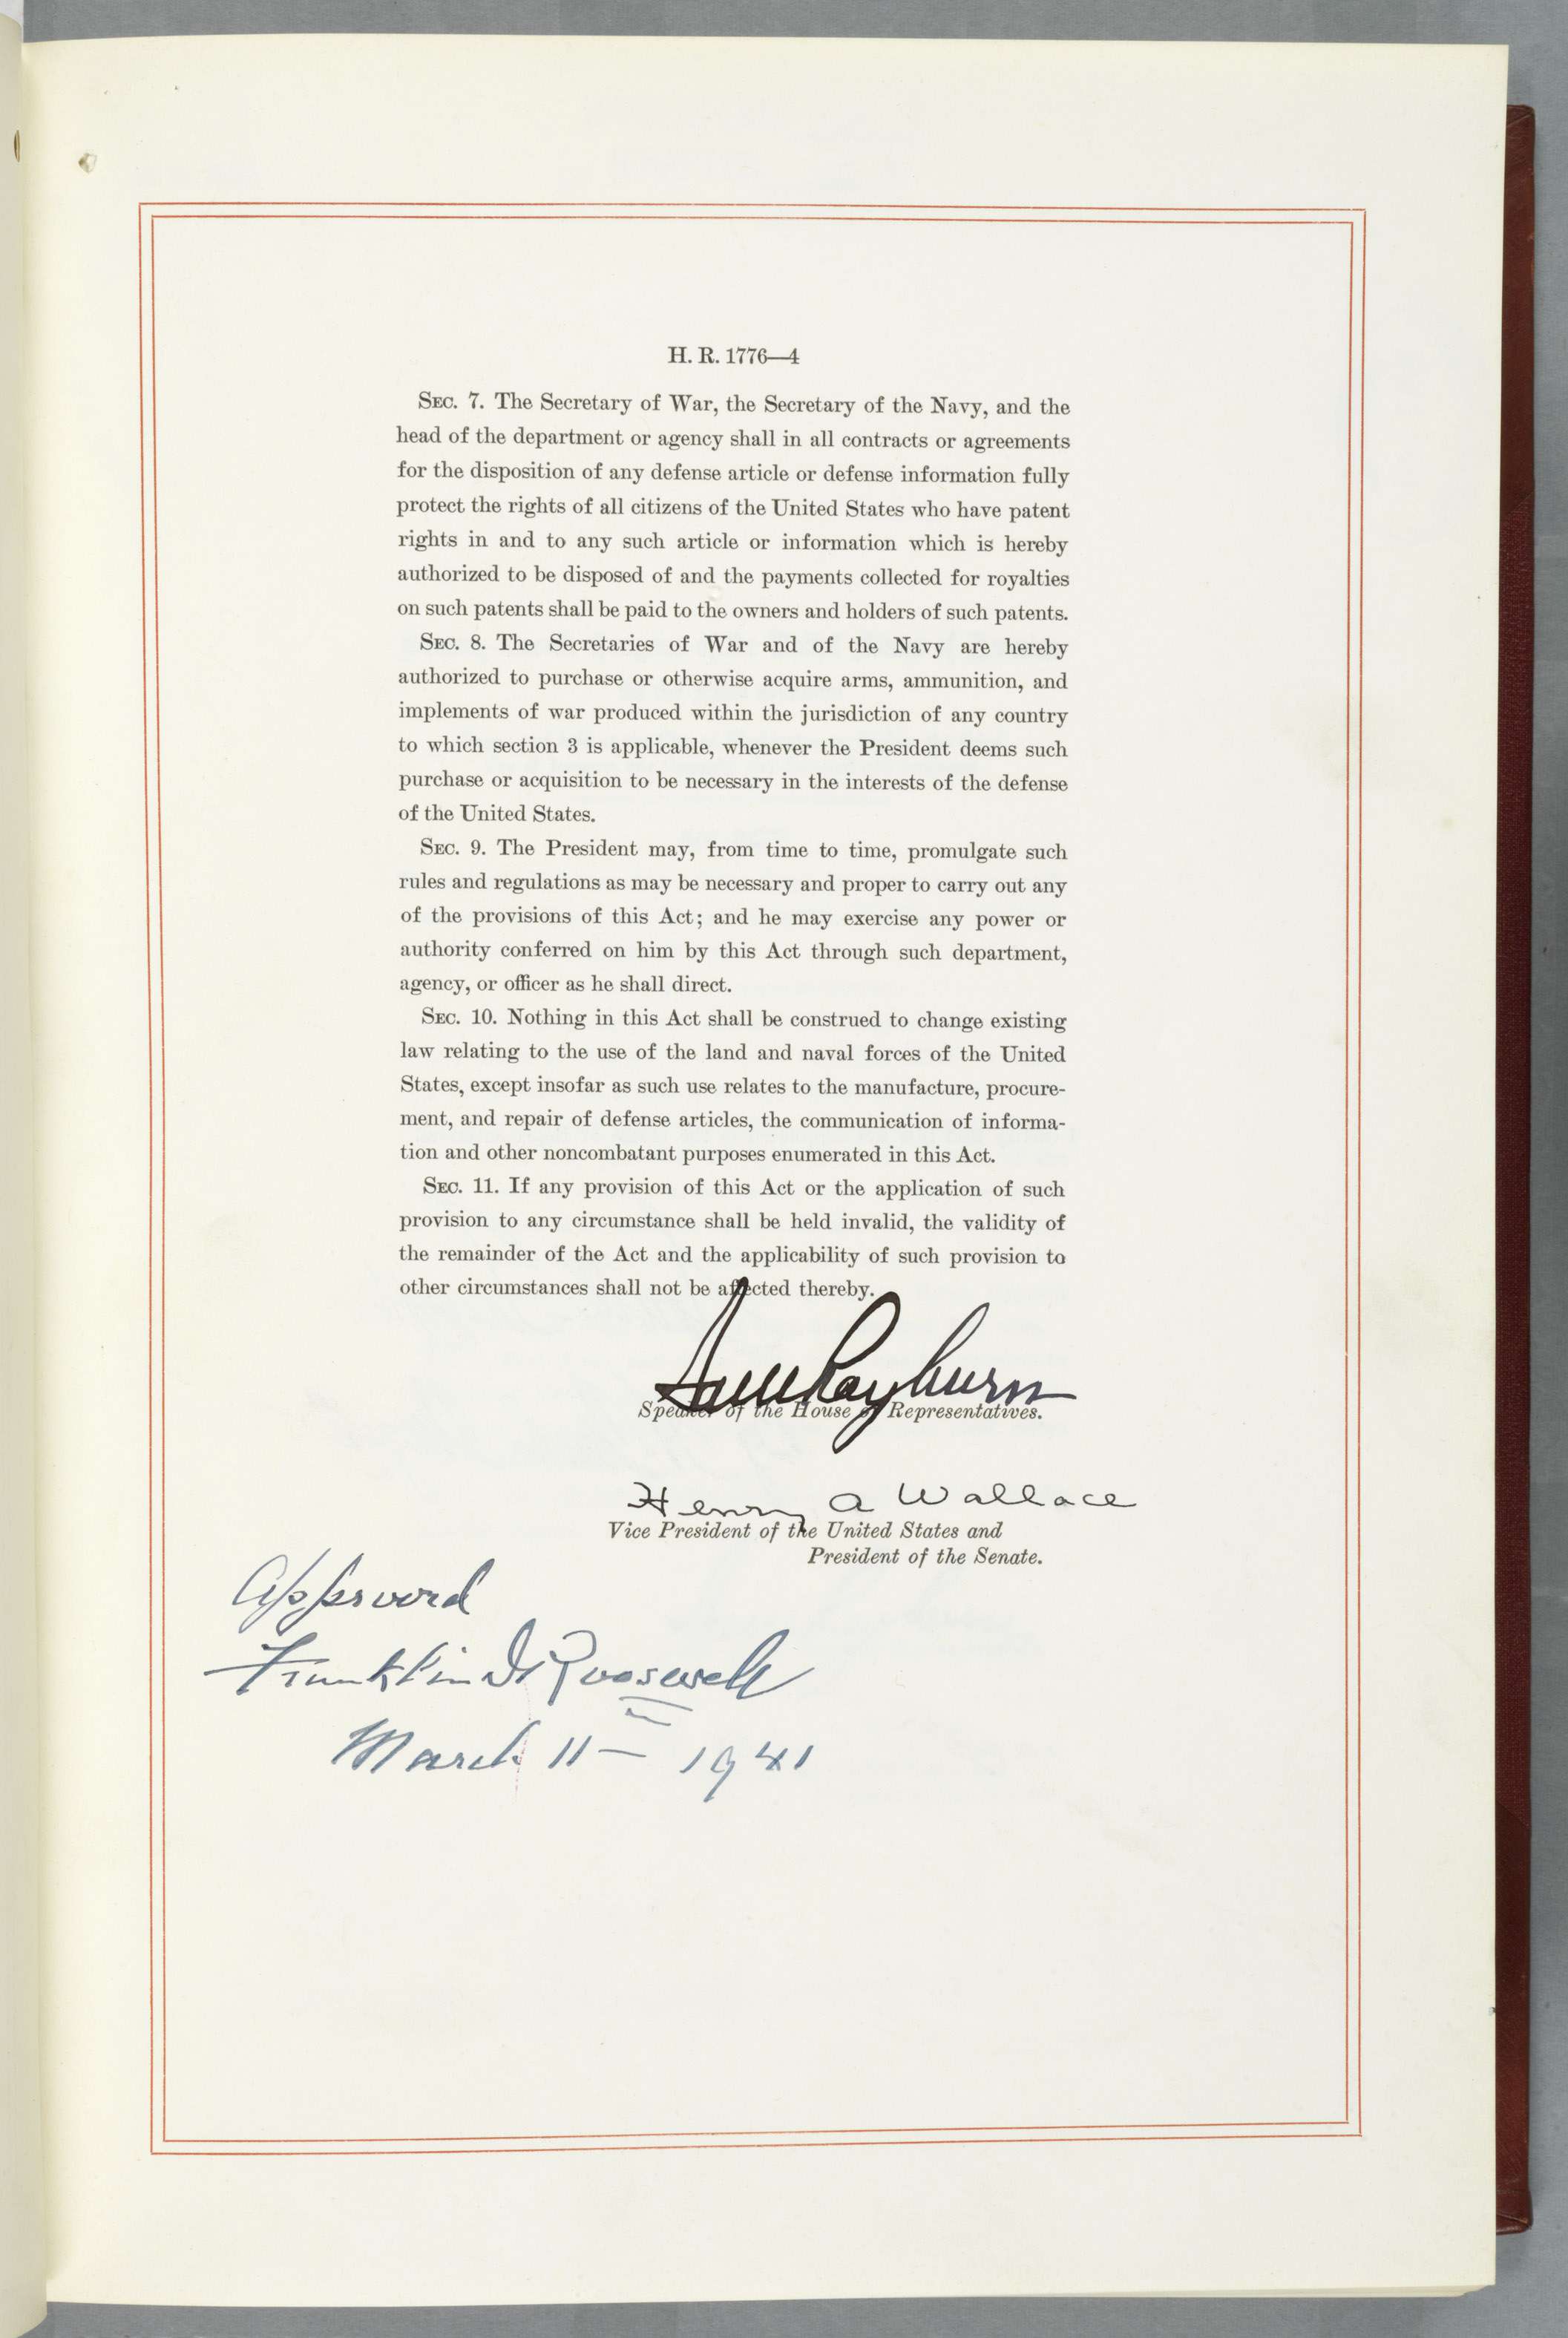 H. R. 1776—4
SEC. 7. The Secretary of War, the Secretary of the Navy, and the
head of the department or agency shall in all contracts or agreements
for the disposition of any defense article or defense information fully
protect the rights of all citizens of the United States who have patent
rights in and to any such article or information which is hereby
authorized to be disposed of and the payments collected for royalties
on such patents shall be paid to the owners and holders of such patents.
SEC. 8. The Secretaries of War and of the Navy are hereby
authorized to purchase or otherwise acquire arms, ammunition, and
implements of war produced within the jurisdiction of any country
to which section 3 is applicable, whenever the President deems such
purchase or acquisition to be necessary in the interests of the defense
of the United States.
SEC. 9. The President may, from time to time, promulgate such
rules and regulations as may be necessary and proper to carry out any
of the provisions of this Act; and he may exercise any power or
authority conferred on him by this Act through such department,
agency, or officer as he shall direct.
SEC. 10. Nothing in this Act shall be construed to change existing
law relating to the use of the land and naval forces of the United
States, except insofar as such use relates to the manufacture, procure-
ment, and repair of defense articles, the communication of informa-
tion and other noncombatant purposes enumerated in this Act.
SEC. 11. If any provision of this Act or the application of such
provision to any circumstance shall be held invalid, the validity of
the remainder of the Act and the applicability of such provision to
other circumstances shall not be affected thereby.
Sam Rayburn
Speaker of the House of Representatives.
Henry A Wallace
Vice President of the United States and
President of the Senate.
Approved
Franklin D Roosevelt
March 11 — 1941